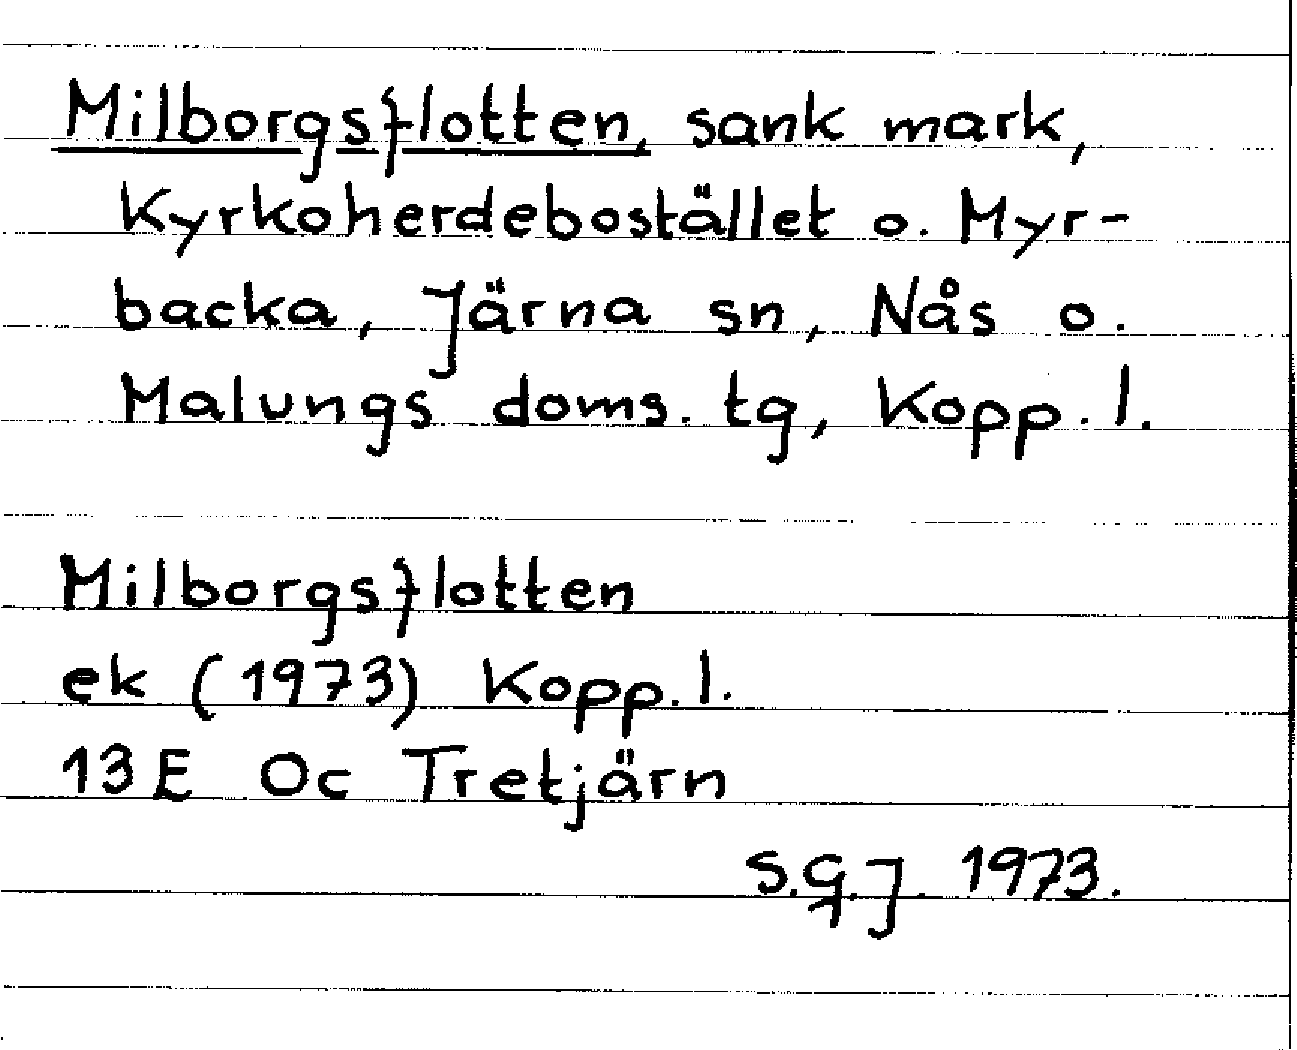 Milborgsflotten, sank mark,
Kyrkoherdebostället o. Myr-
backa, Järna sn, Nås o.
Malungs doms. tg, Kopp. l.
Milborgsflotten
ek (1973) Kopp. l.
13 E 0c Tretjärn
S.G.J. 1973.